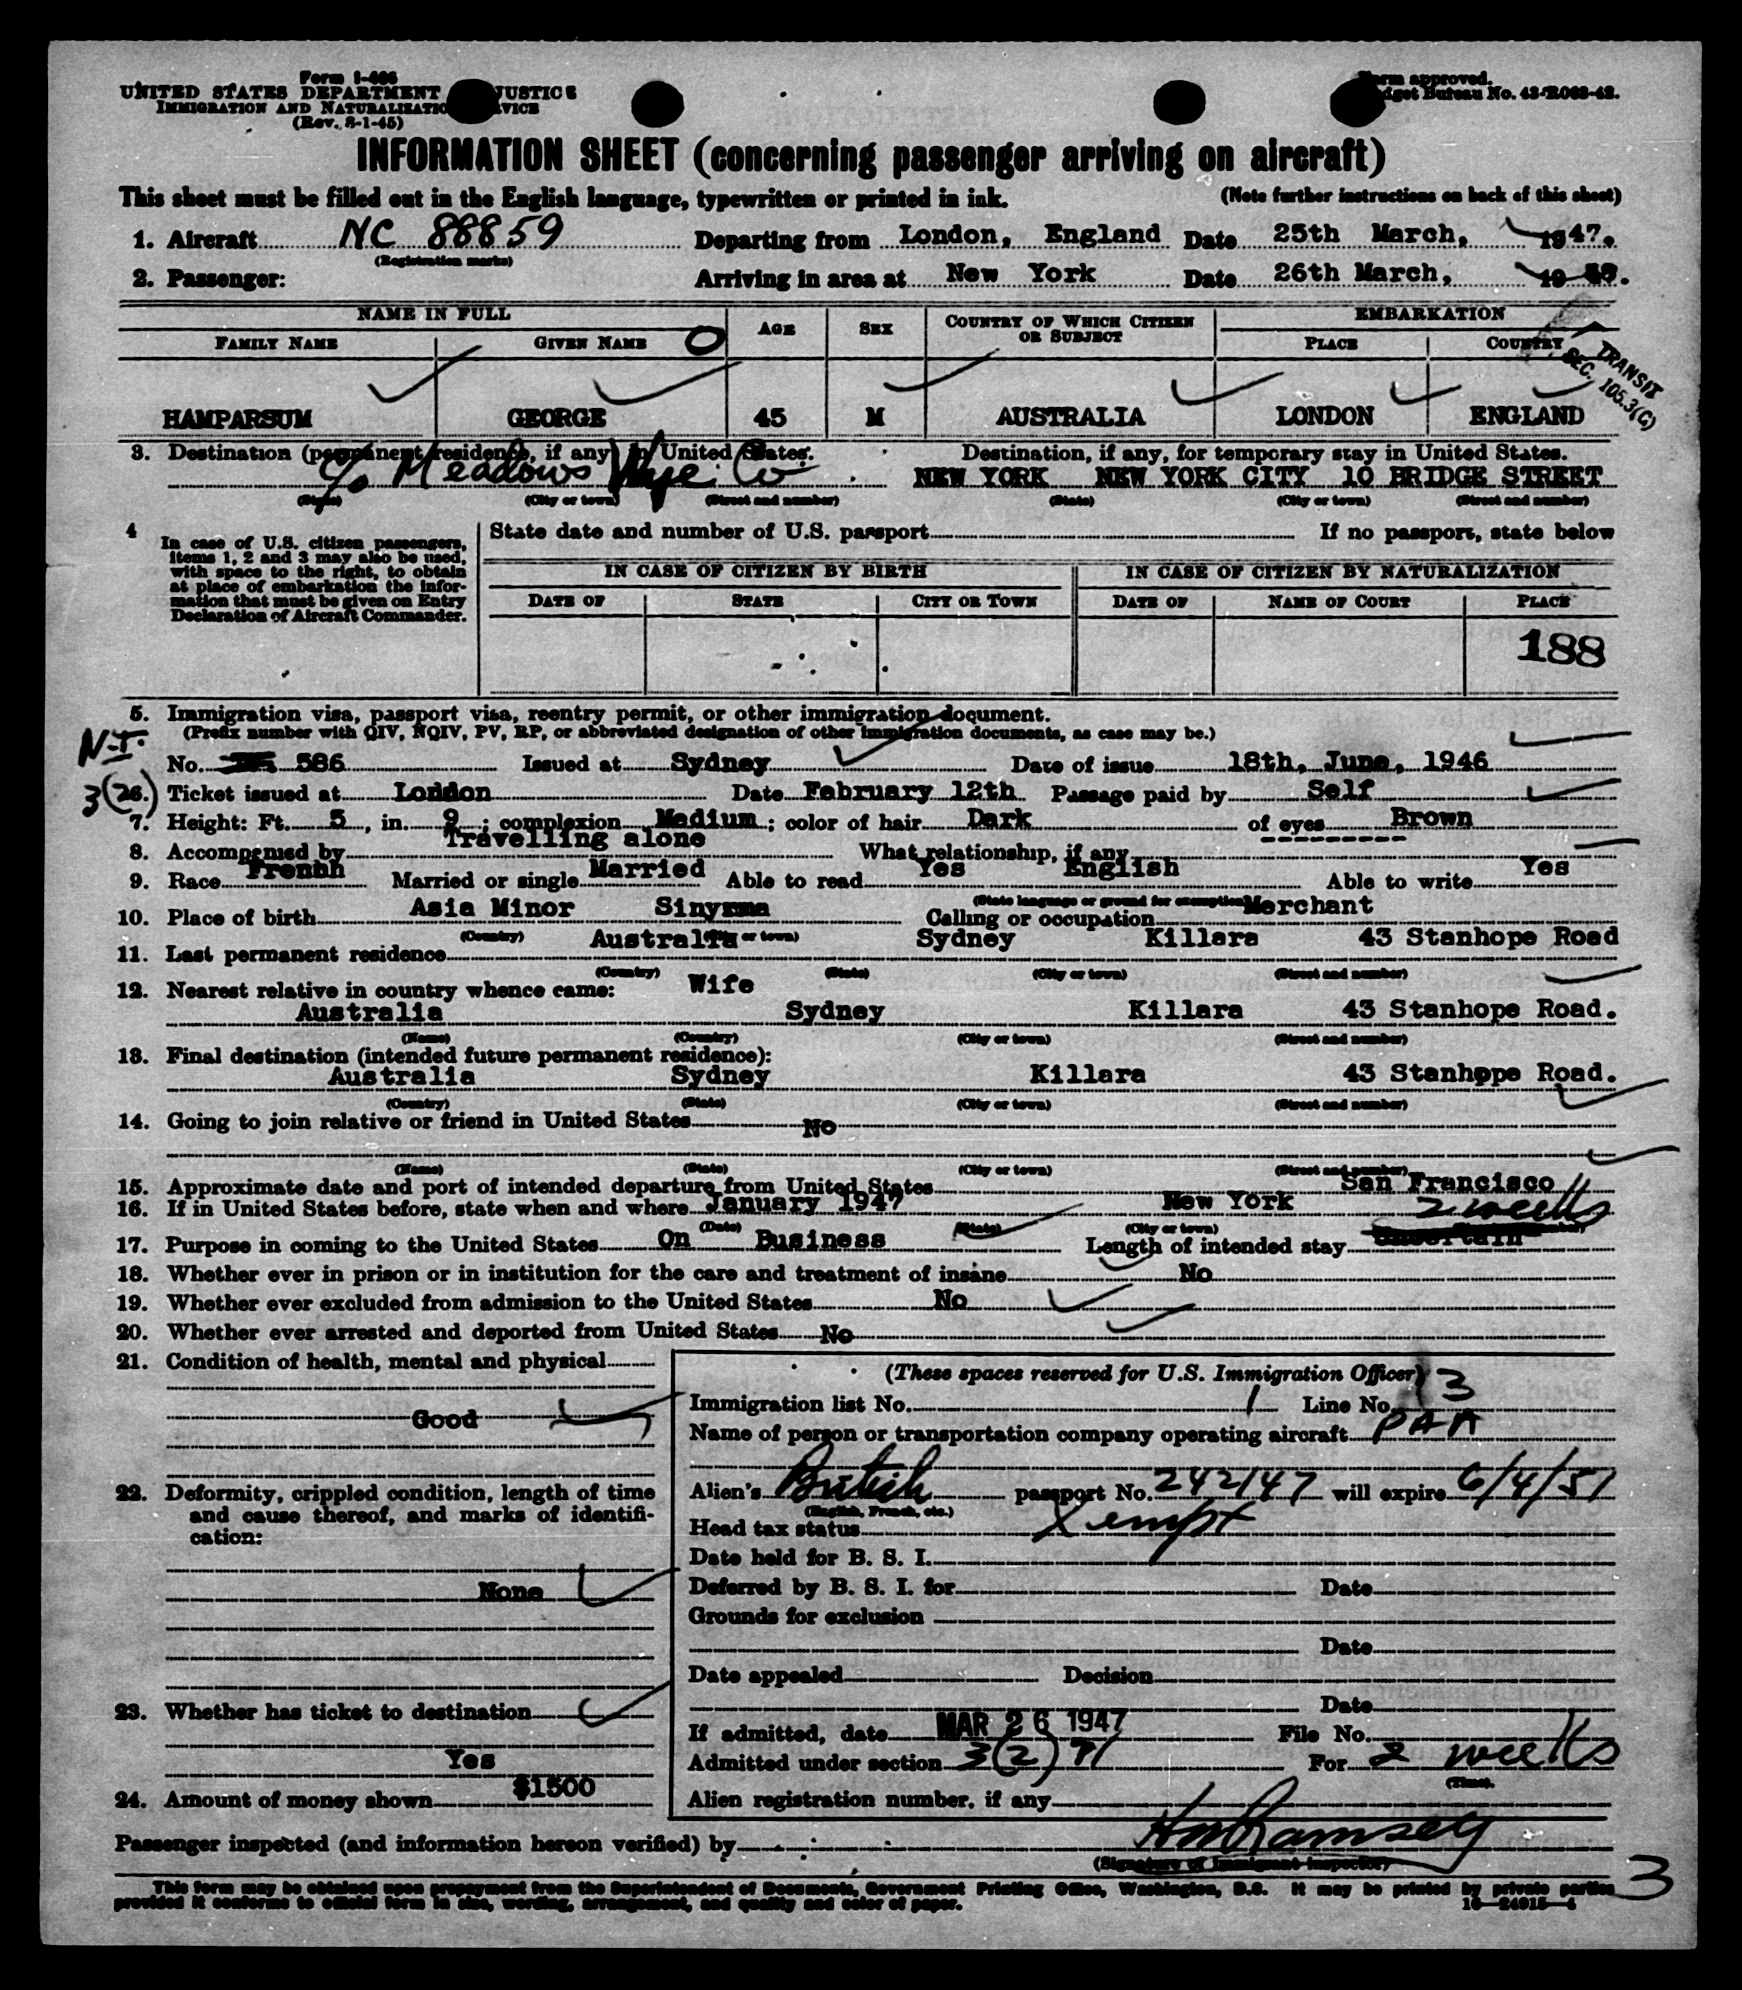 Form I-466
UNITED STATES DEPARTMENT JUSTICE
IMMIGRATION AND NATURALIZATION SERVICE
(Rev. 8-1-45)
Form approved.
Budget Bureau No. 43-R063-42.
INFORMATION SHEET (concerning passenger arriving on aircraft)
This sheet must be filled out in the English language, typewritten or printed in ink.
(Note further instructions on back of this sheet)
1. Aircraft NC 88859 Departing from London, England Date 25th March, 1947.
(Registration marks)
2. Passenger: Arriving in area at New York Date 26th March, 19
NAME IN FULL AGE SEX COUNTRY OF WHICH CITIZEN OR SUBJECT EMBARKATION
FAMILY NAME GIVEN NAME O PLACE COUNTRY
TRANSIT
SEC. 105.3(C)
HAMPARSUM GEORGE 45 M AUSTRALIA LONDON ENGLAND
3. Destination (permanent residence, if any) in United States. Destination, if any, for temporary stay in United States.
c/o Meadows Wye Co NEW YORK NEW YORK CITY 10 BRIDGE STREET
(State) (City or town) (Street and number) (State) (City or town) (Street and number)
4 In case of U.S. citizen passengers, items 1, 2 and 3 may also be used, with space to the right, to obtain at place of embarkation the information that must be given on Entry Declaration of Aircraft Commander.
State date and number of U.S. passport If no passport, state below
IN CASE OF CITIZEN BY BIRTH IN CASE OF CITIZEN BY NATURALIZATION
DATE OF STATE CITY OR TOWN DATE OF NAME OF COURT PLACE
188
5. Immigration visa, passport visa, reentry permit, or other immigration document.
(Prefix number with QIV, NQIV, PV, RP, or abbreviated designation of other immigration documents, as case may be.)
N-I.
No. 586 Issued at Sydney Date of issue 18th, June, 1946
3(2)
6. Ticket issued at London Date February 12th Passage paid by Self
7. Height: Ft. 5, in. 9; complexion Medium; color of hair Dark of eyes Brown
8. Accompanied by Travelling alone What relationship, if any
9. Race French Married or single Married Able to read Yes English Able to write Yes
(State language or ground for exemption)
10. Place of birth Asia Minor Sinyrma Calling or occupation Merchant
(Country) (City or town)
11. Last permanent residence Australia Sydney Killara 43 Stanhope Road
(Country) (State) (City or town) (Street and number)
12. Nearest relative in country whence came: Wife
Australia Sydney Killara 43 Stanhope Road.
(Name) (Country) (City or town) (Street and number)
13. Final destination (intended future permanent residence):
Australia Sydney Killara 43 Stanhope Road.
(Country) (State) (City or town) (Street and number)
14. Going to join relative or friend in United States No
(Name) (State) (City or town) (Street and number)
15. Approximate date and port of intended departure from United States San Francisco
16. If in United States before, state when and where January 1947 New York 2 weeks
(Date) (State) (City or town)
17. Purpose in coming to the United States On Business Length of intended stay Uncertain
18. Whether ever in prison or in institution for the care and treatment of insane No
19. Whether ever excluded from admission to the United States No
20. Whether ever arrested and deported from United States No
21. Condition of health, mental and physical
Good
22. Deformity, crippled condition, length of time
and cause thereof, and marks of identifi-
cation:
None
23. Whether has ticket to destination
Yes
24. Amount of money shown $1500
(These spaces reserved for U.S. Immigration Officer)
Immigration list No. 1 Line No. 13
Name of person or transportation company operating aircraft PAA
Alien's British passport No. 242147 will expire 6/4/51
(English, French, etc.)
Head tax status Xempt
Date held for B. S. I.
Deferred by B. S. I. for Date
Grounds for exclusion
Date
Date appealed Decision
Date
If admitted, date MAR 26 1947 File No.
Admitted under section 3(2) For 2 weeks
(Time).
Alien registration number, if any
Passenger inspected (and information hereon verified) by HM Ramsey
(Signature of immigrant inspector)
This form may be obtained upon prepayment from the Superintendent of Documents, Government Printing Office, Washington, D.C. It may be printed by private parties
provided it conforms to official form in size, wording, arrangement, and quality and color of paper.
16-24915-1
3